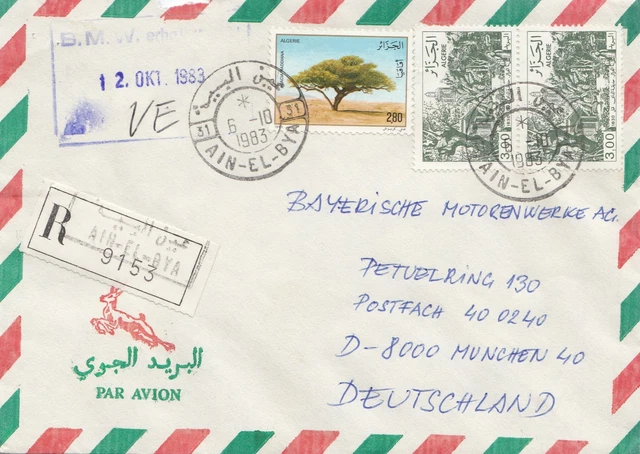 B.M.W. erhalten
12. OKT. 1983
VE
ALGERIE
الجزائر
2,80
عين البية
6-10
1983
31
31
AIN-EL-BYA
الجزائر
ALGERIE
3.00
الجزائر
ALGERIE
3.00
عين البية
-10
1983
AIN-EL-BYA
BAYERISCHE MOTORENWERKE AG.
PETUELRING 130
POSTFACH 40 0240
D-8000 MÜNCHEN 40
DEUTSCHLAND
R
عين البية
AIN-EL-BYA
9153
البريد الجوي
PAR AVION